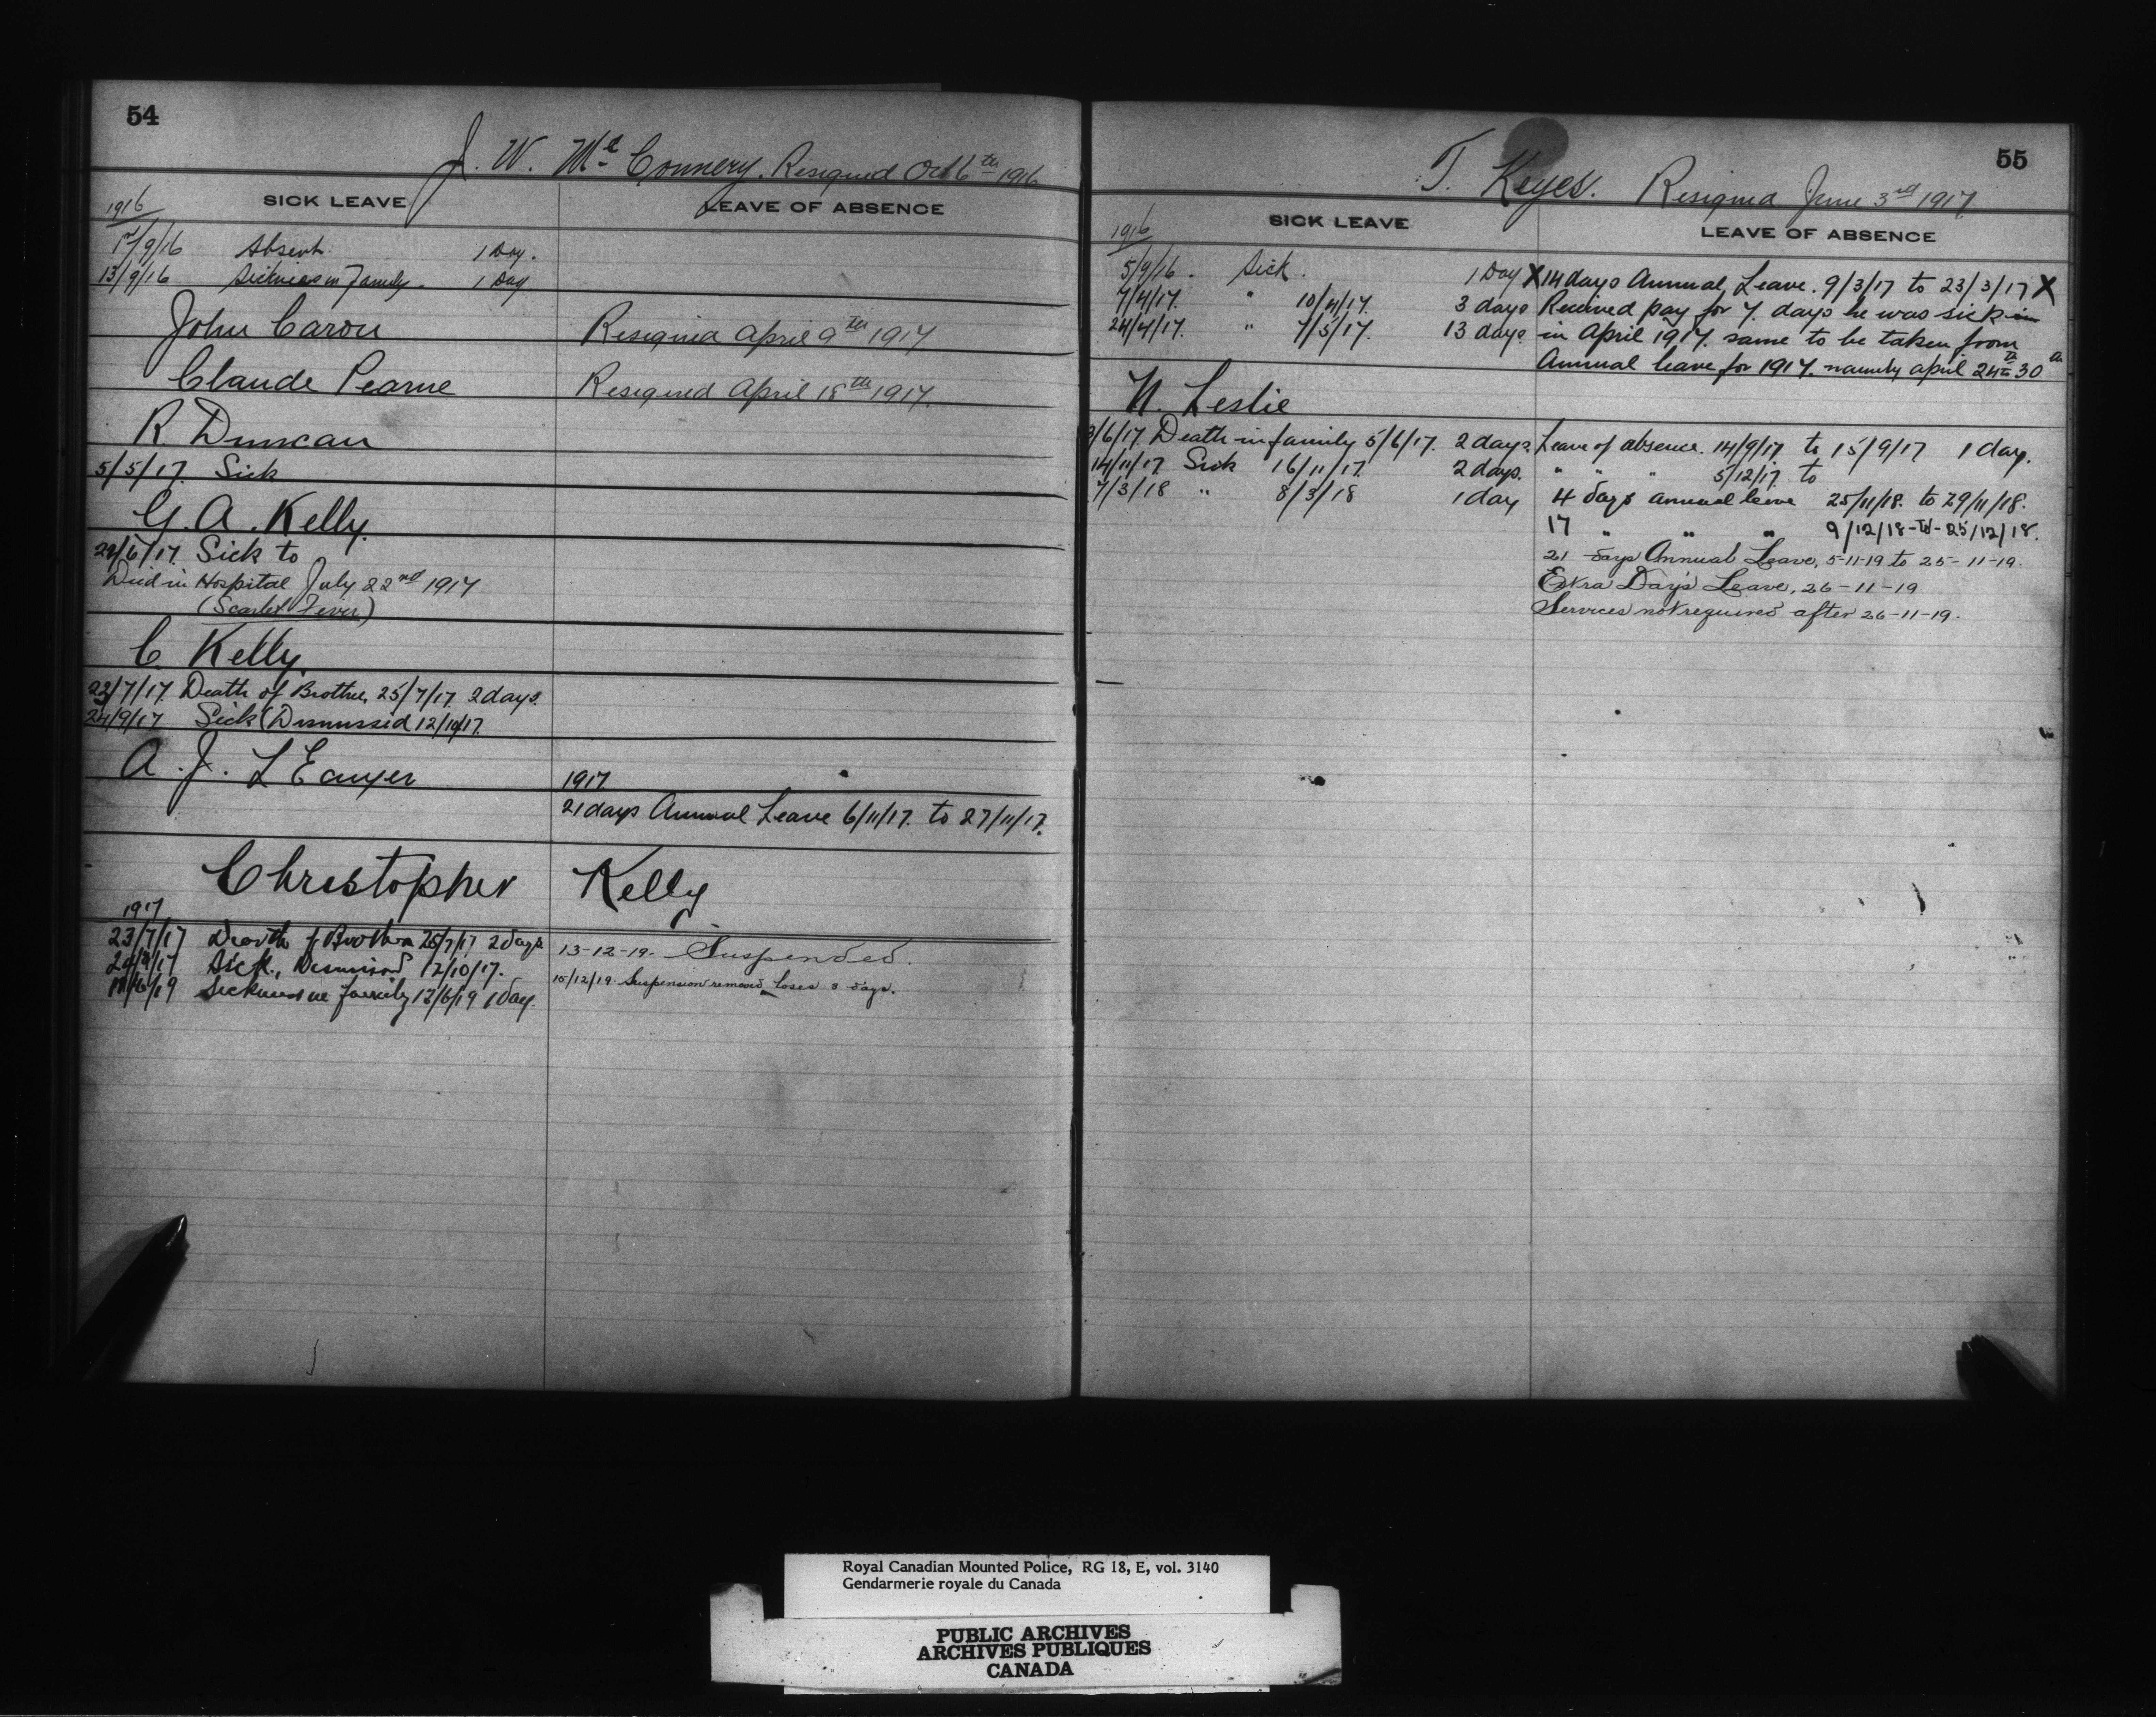 54
J. W. McConnery. Resigned Oct 6th 1916
SICK LEAVE
LEAVE OF ABSENCE
1916
1st/9/16 Absent. 1 Day.
13/9/16 Sickness in Family. 1 Day
John Caron Resigned April 9th 1917
Claude Pearne Resigned April 18th 1917.
R. Duncan
5/5/17. Sick
G. A. Kelly.
/6/17. Sick to
Died in Hospital July 22nd 1917
(Scarlet Fever)
C. Kelly.
23/7/17. Death of Brother, 25/7/17. 2 days.
24/9/17 Sick (Dismissed 12/10/17.
A. J. L'Ecuyer
1917
21 days Annual Leave 6/11/17. to 27/11/17.
Christopher Kelly
1917
23/7/17 Death of Brother 25/7/17 2 days
13-12-19. Suspended.
24/9/17 Sick, Dismissed 12/10/17.
15/12/19. Suspension removed loses 3 days.
/6/19 Sickness in family 12/6/19 1 day.
55
T. Keyes. Resigned June 3rd 1917
SICK LEAVE
LEAVE OF ABSENCE
1916
5/9/16. Sick. 1 Day
X 14 days Annual Leave. 9/3/17 to 23/3/17 X
7/4/17. " 10/4/17. 3 days
Received pay for 7. days he was sick in
24/4/17. " 7/5/17. 13 days.
in April 1917. same to be taken from
Annual leave for 1917. namely april 24th 30th
N. Leslie
3/6/17. Death in family 5/6/17. 2 days.
Leave of absence. 14/9/17 to 15/9/17 1 day.
14/11/17 Sick 16/11/17. 2 days.
" " " 5/12/17. to
7/3/18 " 8/3/18 1 day
4 days annual leave 25/11/18. to 29/11/18.
17 " " " 9/12/18 - to - 25/12/18.
21 days Annual Leave, 5-11-19 to 25-11-19.
Extra Day's Leave, 26-11-19
Services not required after 26-11-19.
Royal Canadian Mounted Police, RG 18, E, vol. 3140
Gendarmerie royale du Canada
PUBLIC ARCHIVES
ARCHIVES PUBLIQUES
CANADA